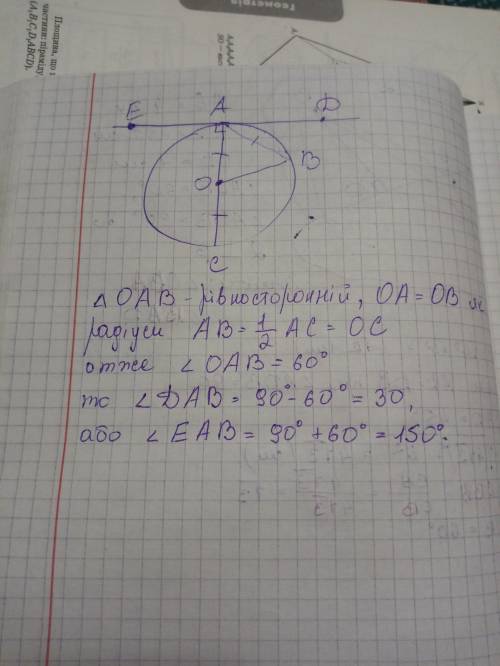 Геометрія
Площина, що
частини: піраміду
(A,B,C,D,ABCD),
A
E A D
O B
C
△ OAB - рівносторонній, OA = OB як
радіуси AB = 1/2 AC = OC
отже ∠ OAB = 60°
то ∠ DAB = 90° - 60° = 30,
або ∠ EAB = 90° + 60° = 150°.